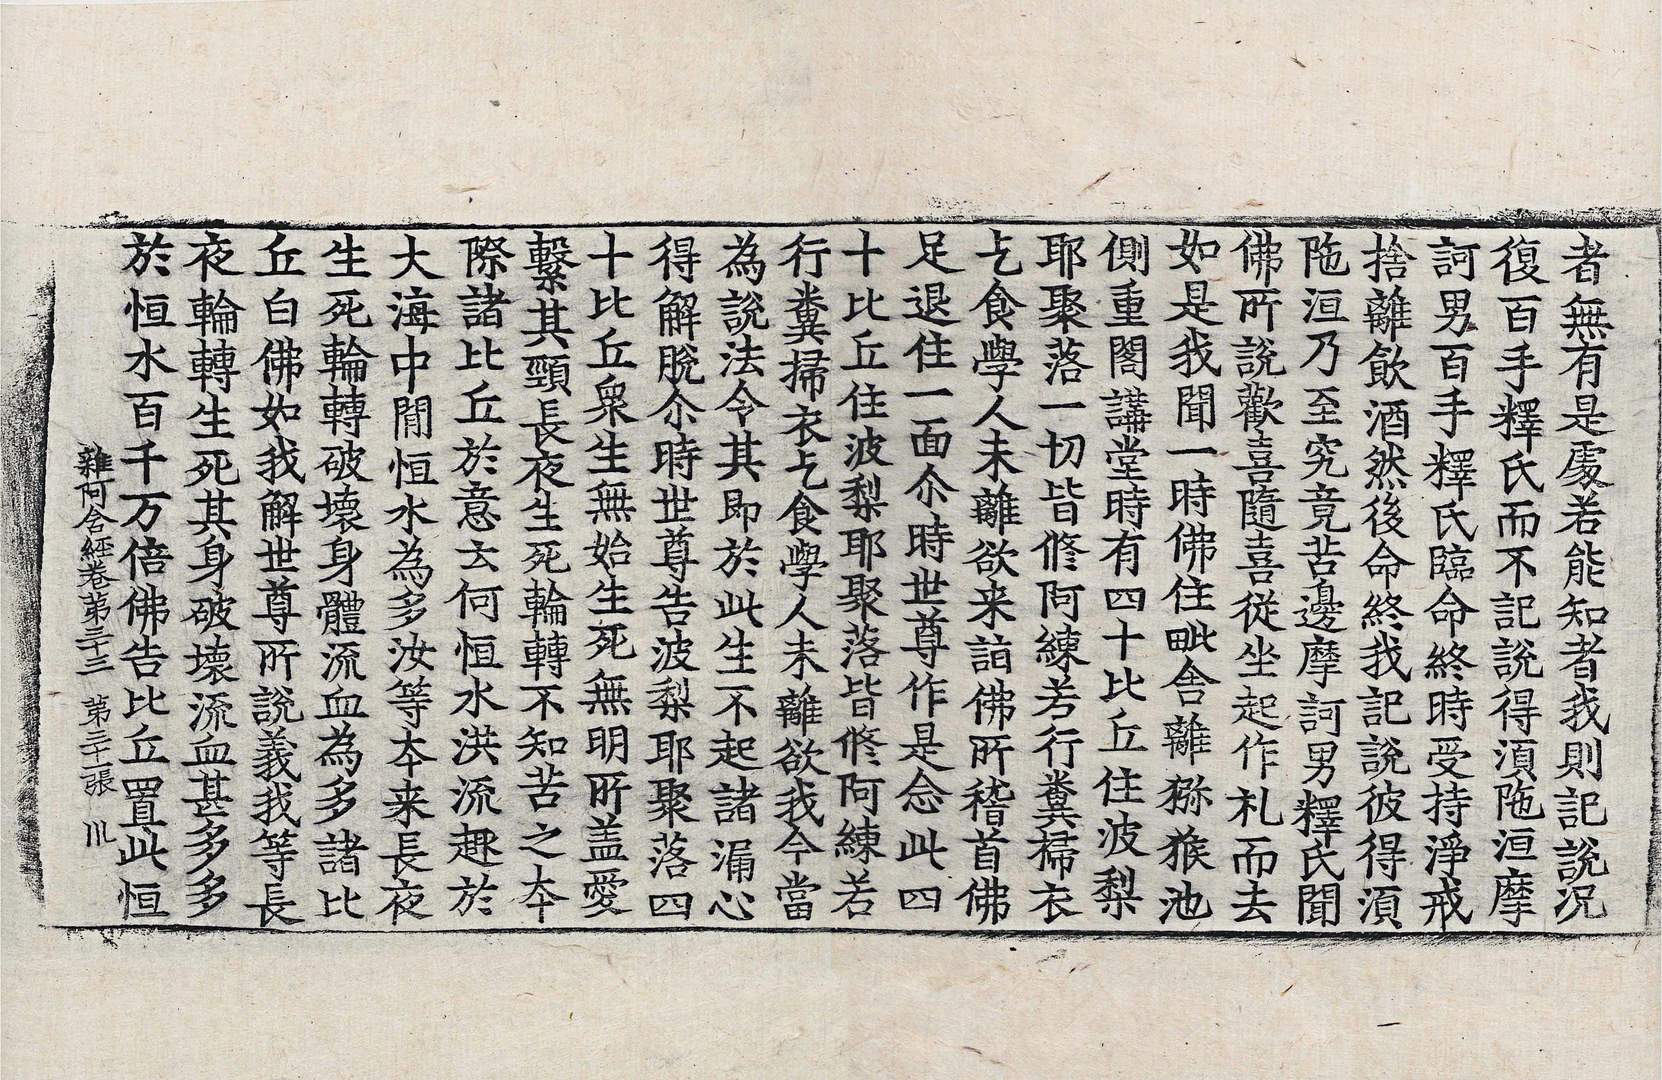 者無有是處若能知者我則記說況
復百手釋氏而不記說得湏陁洹摩
訶男百手釋氏臨命終時受持淨戒
捨離飲酒然後命終我記說彼得湏
陁洹乃至究竟苦邊摩訶男釋氏聞
佛所說歡喜隨喜從坐起作礼而去
如是我聞一時佛住毗舍離獼猴池
側重閣講堂時有四十比丘住波梨
耶聚落一切皆修阿練若行糞掃衣
乞食學人未離欲来詣佛所稽首佛
足退住一面尒時世尊作是念此四
十比丘住波梨耶聚落皆修阿練若
行糞掃衣乞食學人未離欲我今當
為說法令其即於此生不起諸漏心
得解脫尒時世尊告波梨耶聚落四
十比丘衆生無始生死無明所盖愛
繫其頸長夜生死輪轉不知苦之夲
際諸比丘於意云何恒水洪流趣於
大海中閒恒水為多汝等夲来長夜
生死輪轉破壞身體流血為多諸比
丘白佛如我解世尊所說義我等長
夜輪轉生死其身破壞流血甚多多
於恒水百千万倍佛告比丘置此恒
雜阿含經卷第三十三 第三十一張 川